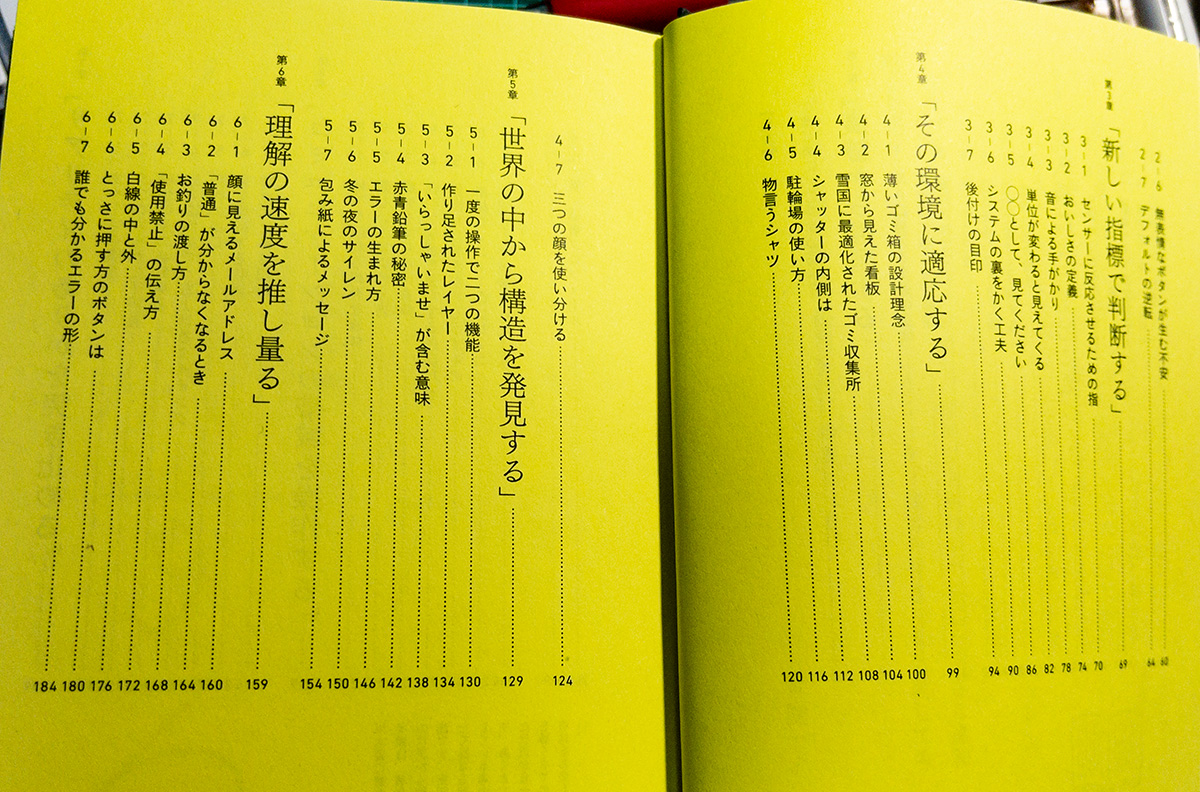 2-6 無表情なボタンが生む不安 60
2-7 デフォルトの逆転 64
第3章 「新しい指標で判断する」 69
3-1 センサーに反応させるための指 70
3-2 おいしさの定義 74
3-3 音による手がかり 78
3-4 単位が変わると見えてくる 82
3-5 ○○として、見てください 86
3-6 システムの裏をかく工夫 90
3-7 後付けの目印 94
第4章 「その環境に適応する」 99
4-1 薄いゴミ箱の設計理念 100
4-2 窓から見えた看板 104
4-3 雪国に最適化されたゴミ収集所 108
4-4 シャッターの内側は 112
4-5 駐輪場の使い方 116
4-6 物言うシャツ 120
4-7 三つの顔を使い分ける 124
第5章 「世界の中から構造を発見する」 129
5-1 一度の操作で二つの機能 130
5-2 作り足されたレイヤー 134
5-3 「いらっしゃいませ」が含む意味 138
5-4 赤青鉛筆の秘密 142
5-5 エラーの生まれ方 146
5-6 冬の夜のサイレン 150
5-7 包み紙によるメッセージ 154
第6章 「理解の速度を推し量る」 159
6-1 顔に見えるメールアドレス 160
6-2 「普通」が分からなくなるとき 164
6-3 お釣りの渡し方 168
6-4 「使用禁止」の伝え方 172
6-5 白線の中と外 176
6-6 とっさに押す方のボタンは 180
6-7 誰でも分かるエラーの形 184